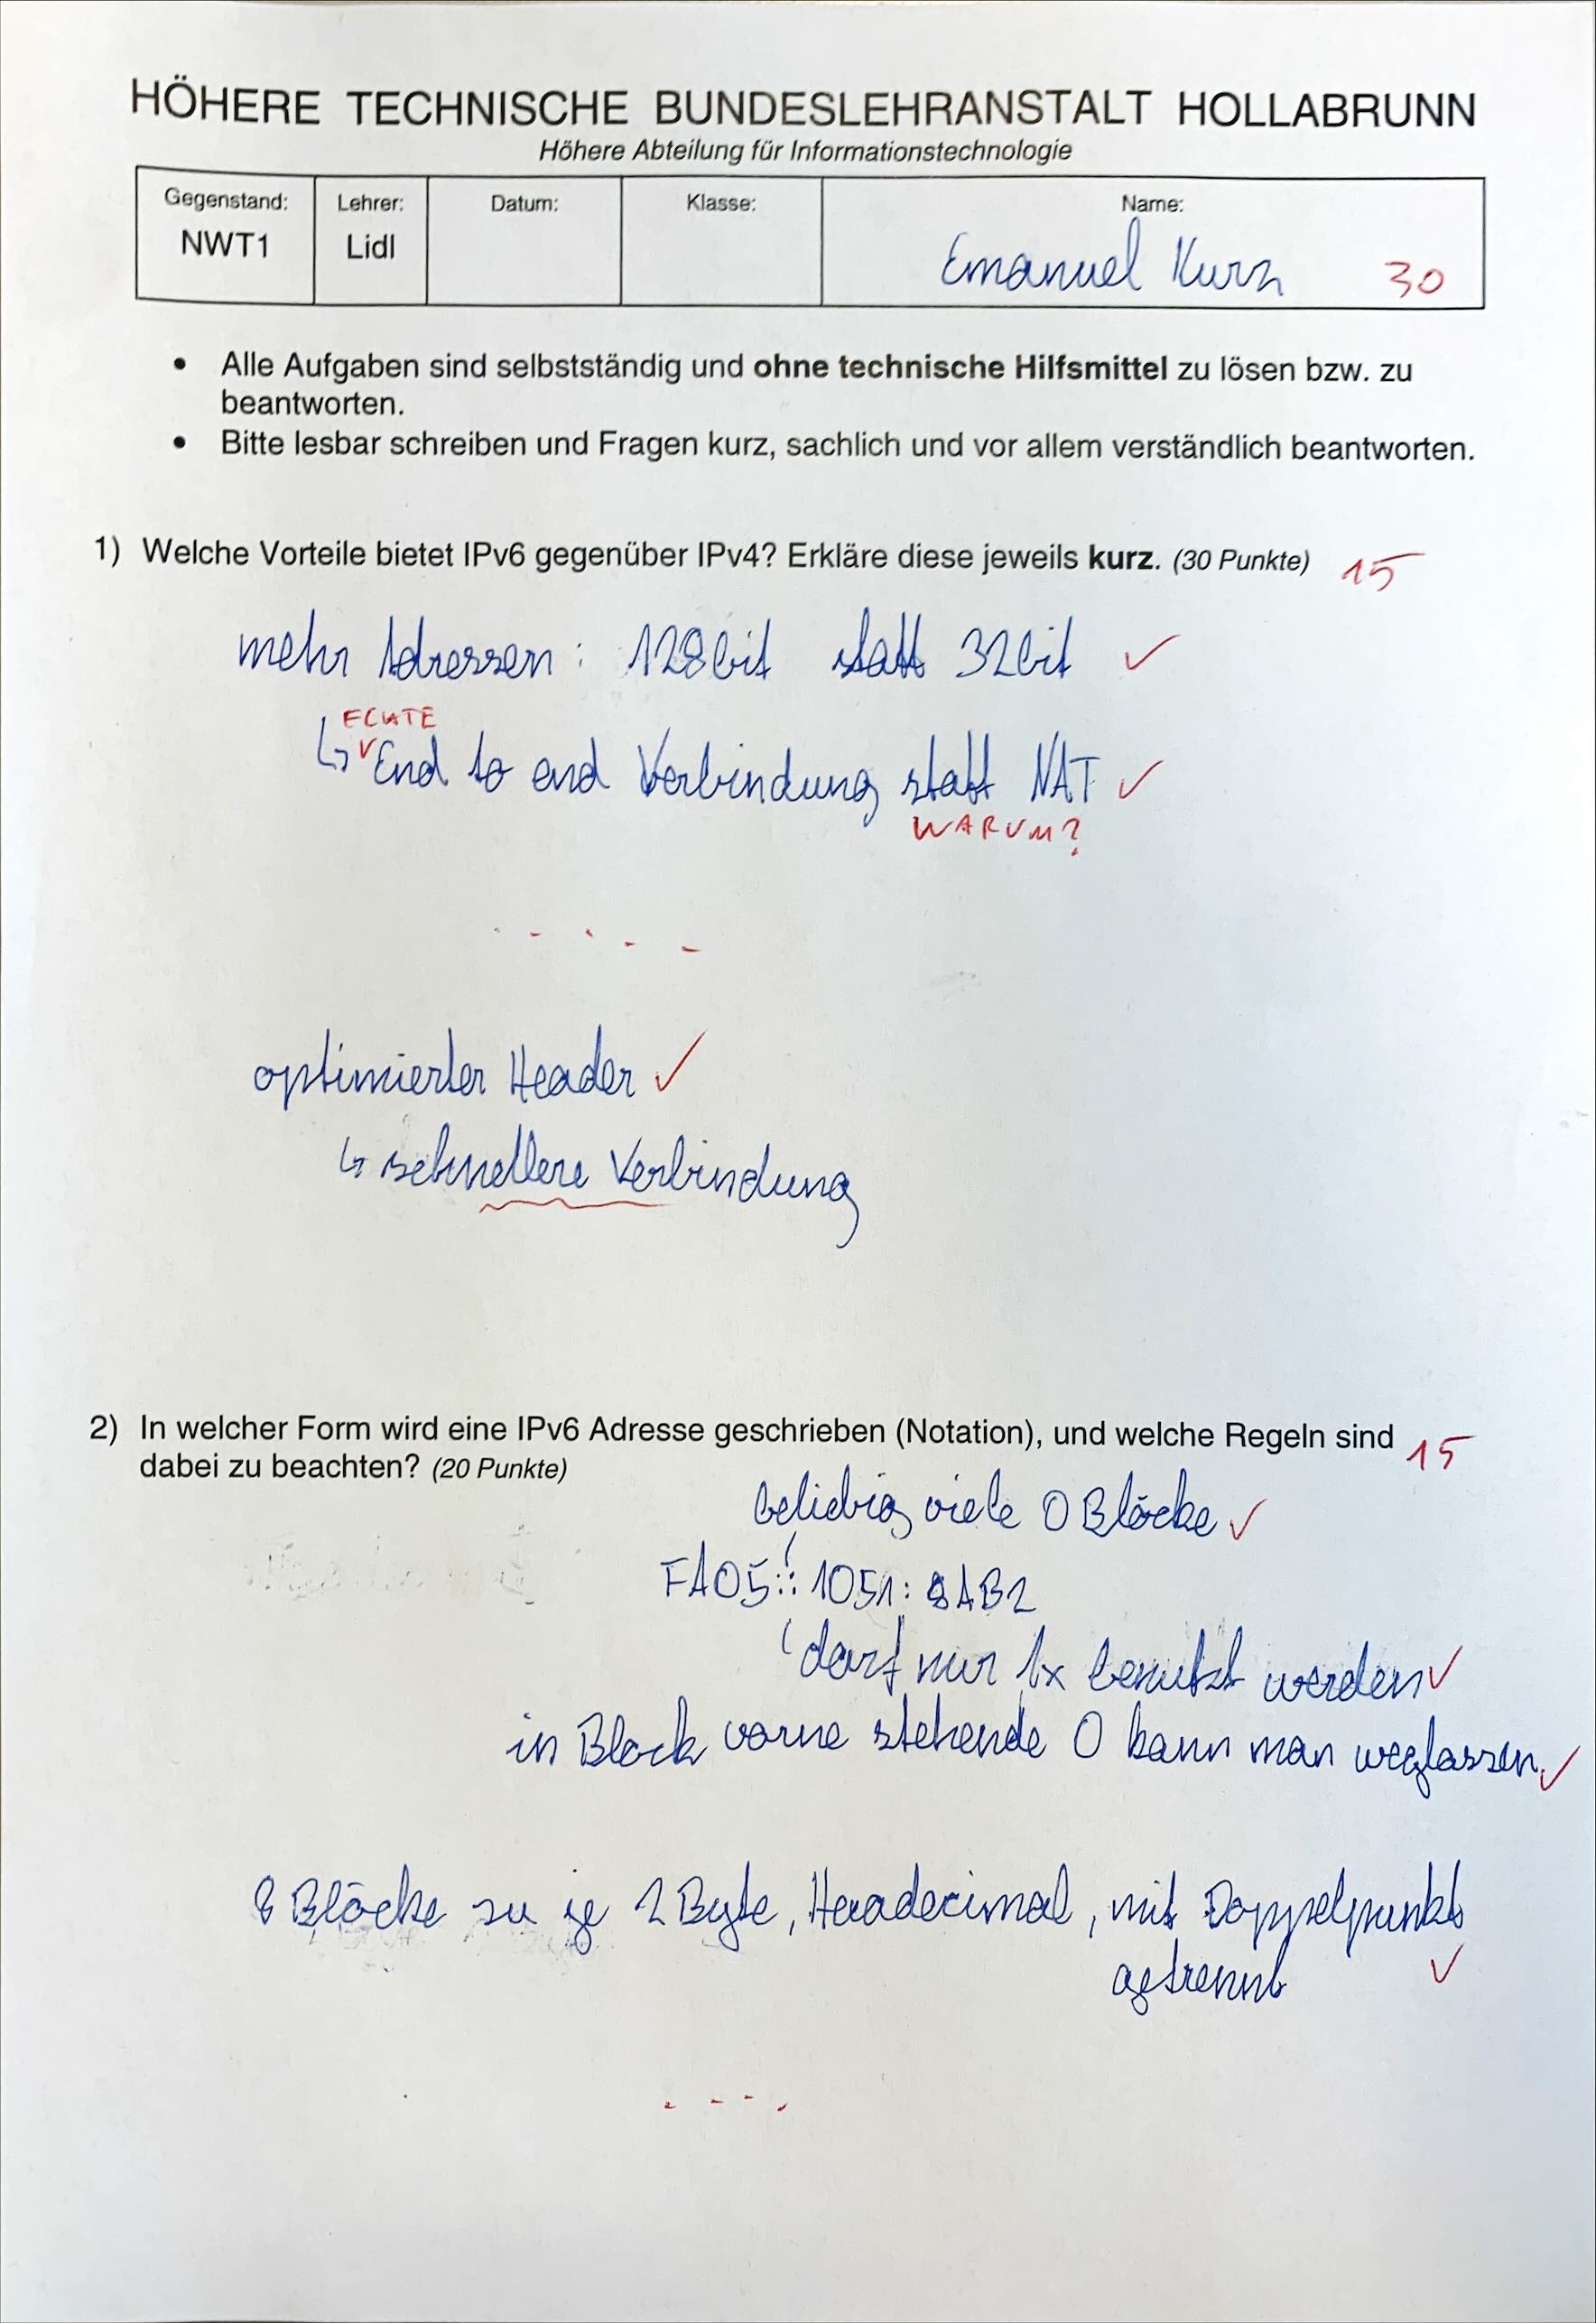 HÖHERE TECHNISCHE BUNDESLEHRANSTALT HOLLABRUNN
Höhere Abteilung für Informationstechnologie
Gegenstand: Lehrer: Datum: Klasse: Name:
NWT1 Lidl Emanuel Kurz 30
• Alle Aufgaben sind selbstständig und ohne technische Hilfsmittel zu lösen bzw. zu
beantworten.
• Bitte lesbar schreiben und Fragen kurz, sachlich und vor allem verständlich beantworten.
1) Welche Vorteile bietet IPv6 gegenüber IPv4? Erkläre diese jeweils kurz. (30 Punkte) 15
mehr Adressen: 128bit statt 32bit ✓
ECHTE
↳ End to end Verbindung statt NAT ✓
WARUM?
optimierter Header ✓
↳ schnellere Verbindung
2) In welcher Form wird eine IPv6 Adresse geschrieben (Notation), und welche Regeln sind 15
dabei zu beachten? (20 Punkte)
beliebig viele 0 Blöcke ✓
FA05::1051:8AB2
darf nur 1x benutzt werden ✓
in Block vorne stehende 0 kann man weglassen. ✓
8 Blöcke zu je 2 Byte, Hexadecimal, mit Doppelpunkt
getrennt ✓